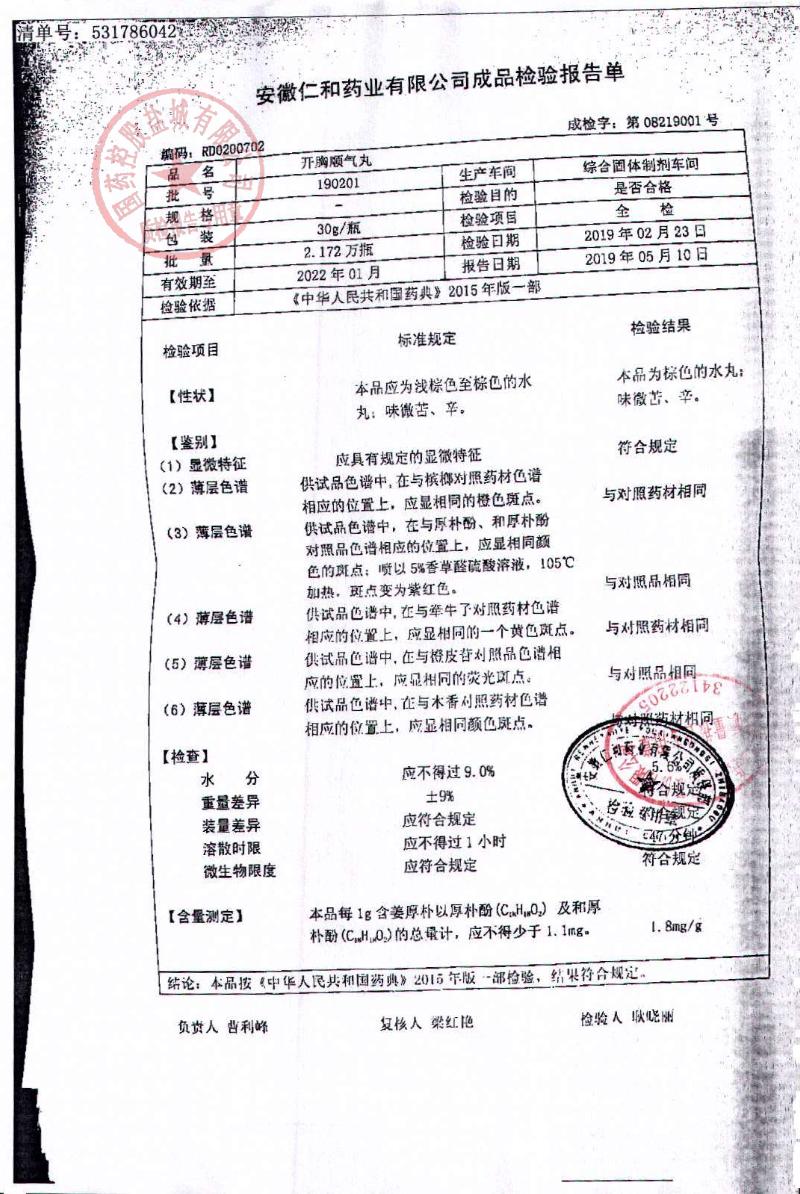 清单号：531786042
安徽仁和药业有限公司成品检验报告单
成检字：第 08219001 号
编码：RD0200702
品 名 开胸顺气丸 生产车间 综合固体制剂车间
批 号 190201 检验目的 是否合格
规 格 - 检验项目 全 检
包 装 30g/瓶 检验日期 2019 年 02 月 23 日
批 量 2.172 万瓶 报告日期 2019 年 05 月 10 日
有效期至 2022 年 01 月
检验依据 《中华人民共和国药典》2015 年版一部
国药控股盐城有限公司
质检报告专用章
检验项目 标准规定 检验结果
【性状】 本品应为浅棕色至棕色的水 本品为棕色的水丸；
丸；味微苦、辛。 味微苦、辛。
【鉴别】
（1）显微特征 应具有规定的显微特征 符合规定
（2）薄层色谱 供试品色谱中,在与槟榔对照药材色谱
相应的位置上，应显相同的橙色斑点。 与对照药材相同
（3）薄层色谱 供试品色谱中，在与厚朴酚、和厚朴酚
对照品色谱相应的位置上，应显相同颜
色的斑点；喷以 5%香草醛硫酸溶液，105℃
加热，斑点变为紫红色。 与对照品相同
（4）薄层色谱 供试品色谱中,在与牵牛子对照药材色谱
相应的位置上，应显相同的一个黄色斑点。 与对照药材相同
（5）薄层色谱 供试品色谱中,在与橙皮苷对照品色谱相
应的位置上，应显相同的荧光斑点。 与对照品相同
（6）薄层色谱 供试品色谱中,在与木香对照药材色谱
相应的位置上，应显相同颜色斑点。 与对照药材相同
34122205
【检查】
水 分 应不得过 9.0% 5.6%
重量差异 ±9% 符合规定
装量差异 应符合规定 符合规定
溶散时限 应不得过 1 小时 47 分钟
微生物限度 应符合规定 符合规定
【含量测定】 本品每 1g 含姜厚朴以厚朴酚(C₁₈H₁₈O₂) 及和厚
朴酚(C₁₈H₁₈O₂)的总量计，应不得少于 1.1mg。 1.8mg/g
结论：本品按《中华人民共和国药典》2015 年版一部检验，结果符合规定。
负责人 曹利峰 复核人 梁红艳 检验人 耿晓丽